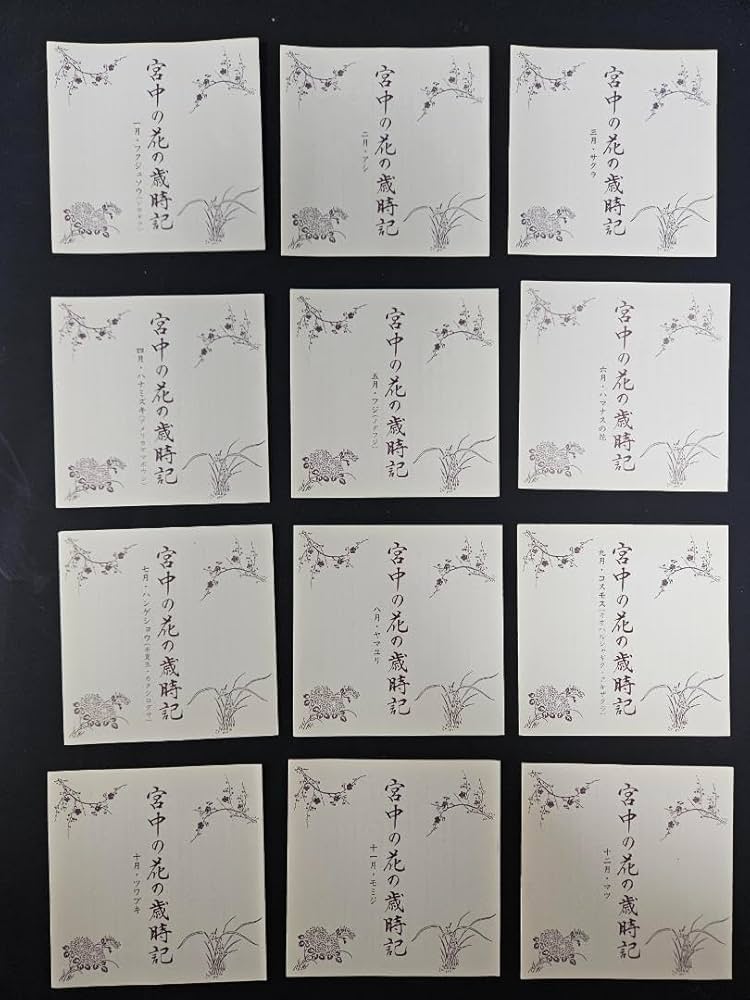 宮中の花の歳時記
一月・フクジュソウ
宮中の花の歳時記
二月・アシ
宮中の花の歳時記
三月・サクラ
宮中の花の歳時記
四月・ハナミズキ(アメリカヤマボウシ)
宮中の花の歳時記
五月・フジ(ノダフジ)
宮中の花の歳時記
六月・ハマナスの花
宮中の花の歳時記
七月・ハンゲショウ(半夏生・カタシログサ)
宮中の花の歳時記
八月・ヤマユリ
宮中の花の歳時記
九月・コスモス(オオハルシャギク・アキザクラ)
宮中の花の歳時記
十月・ツワブキ
宮中の花の歳時記
十一月・モミジ
宮中の花の歳時記
十二月・マツ